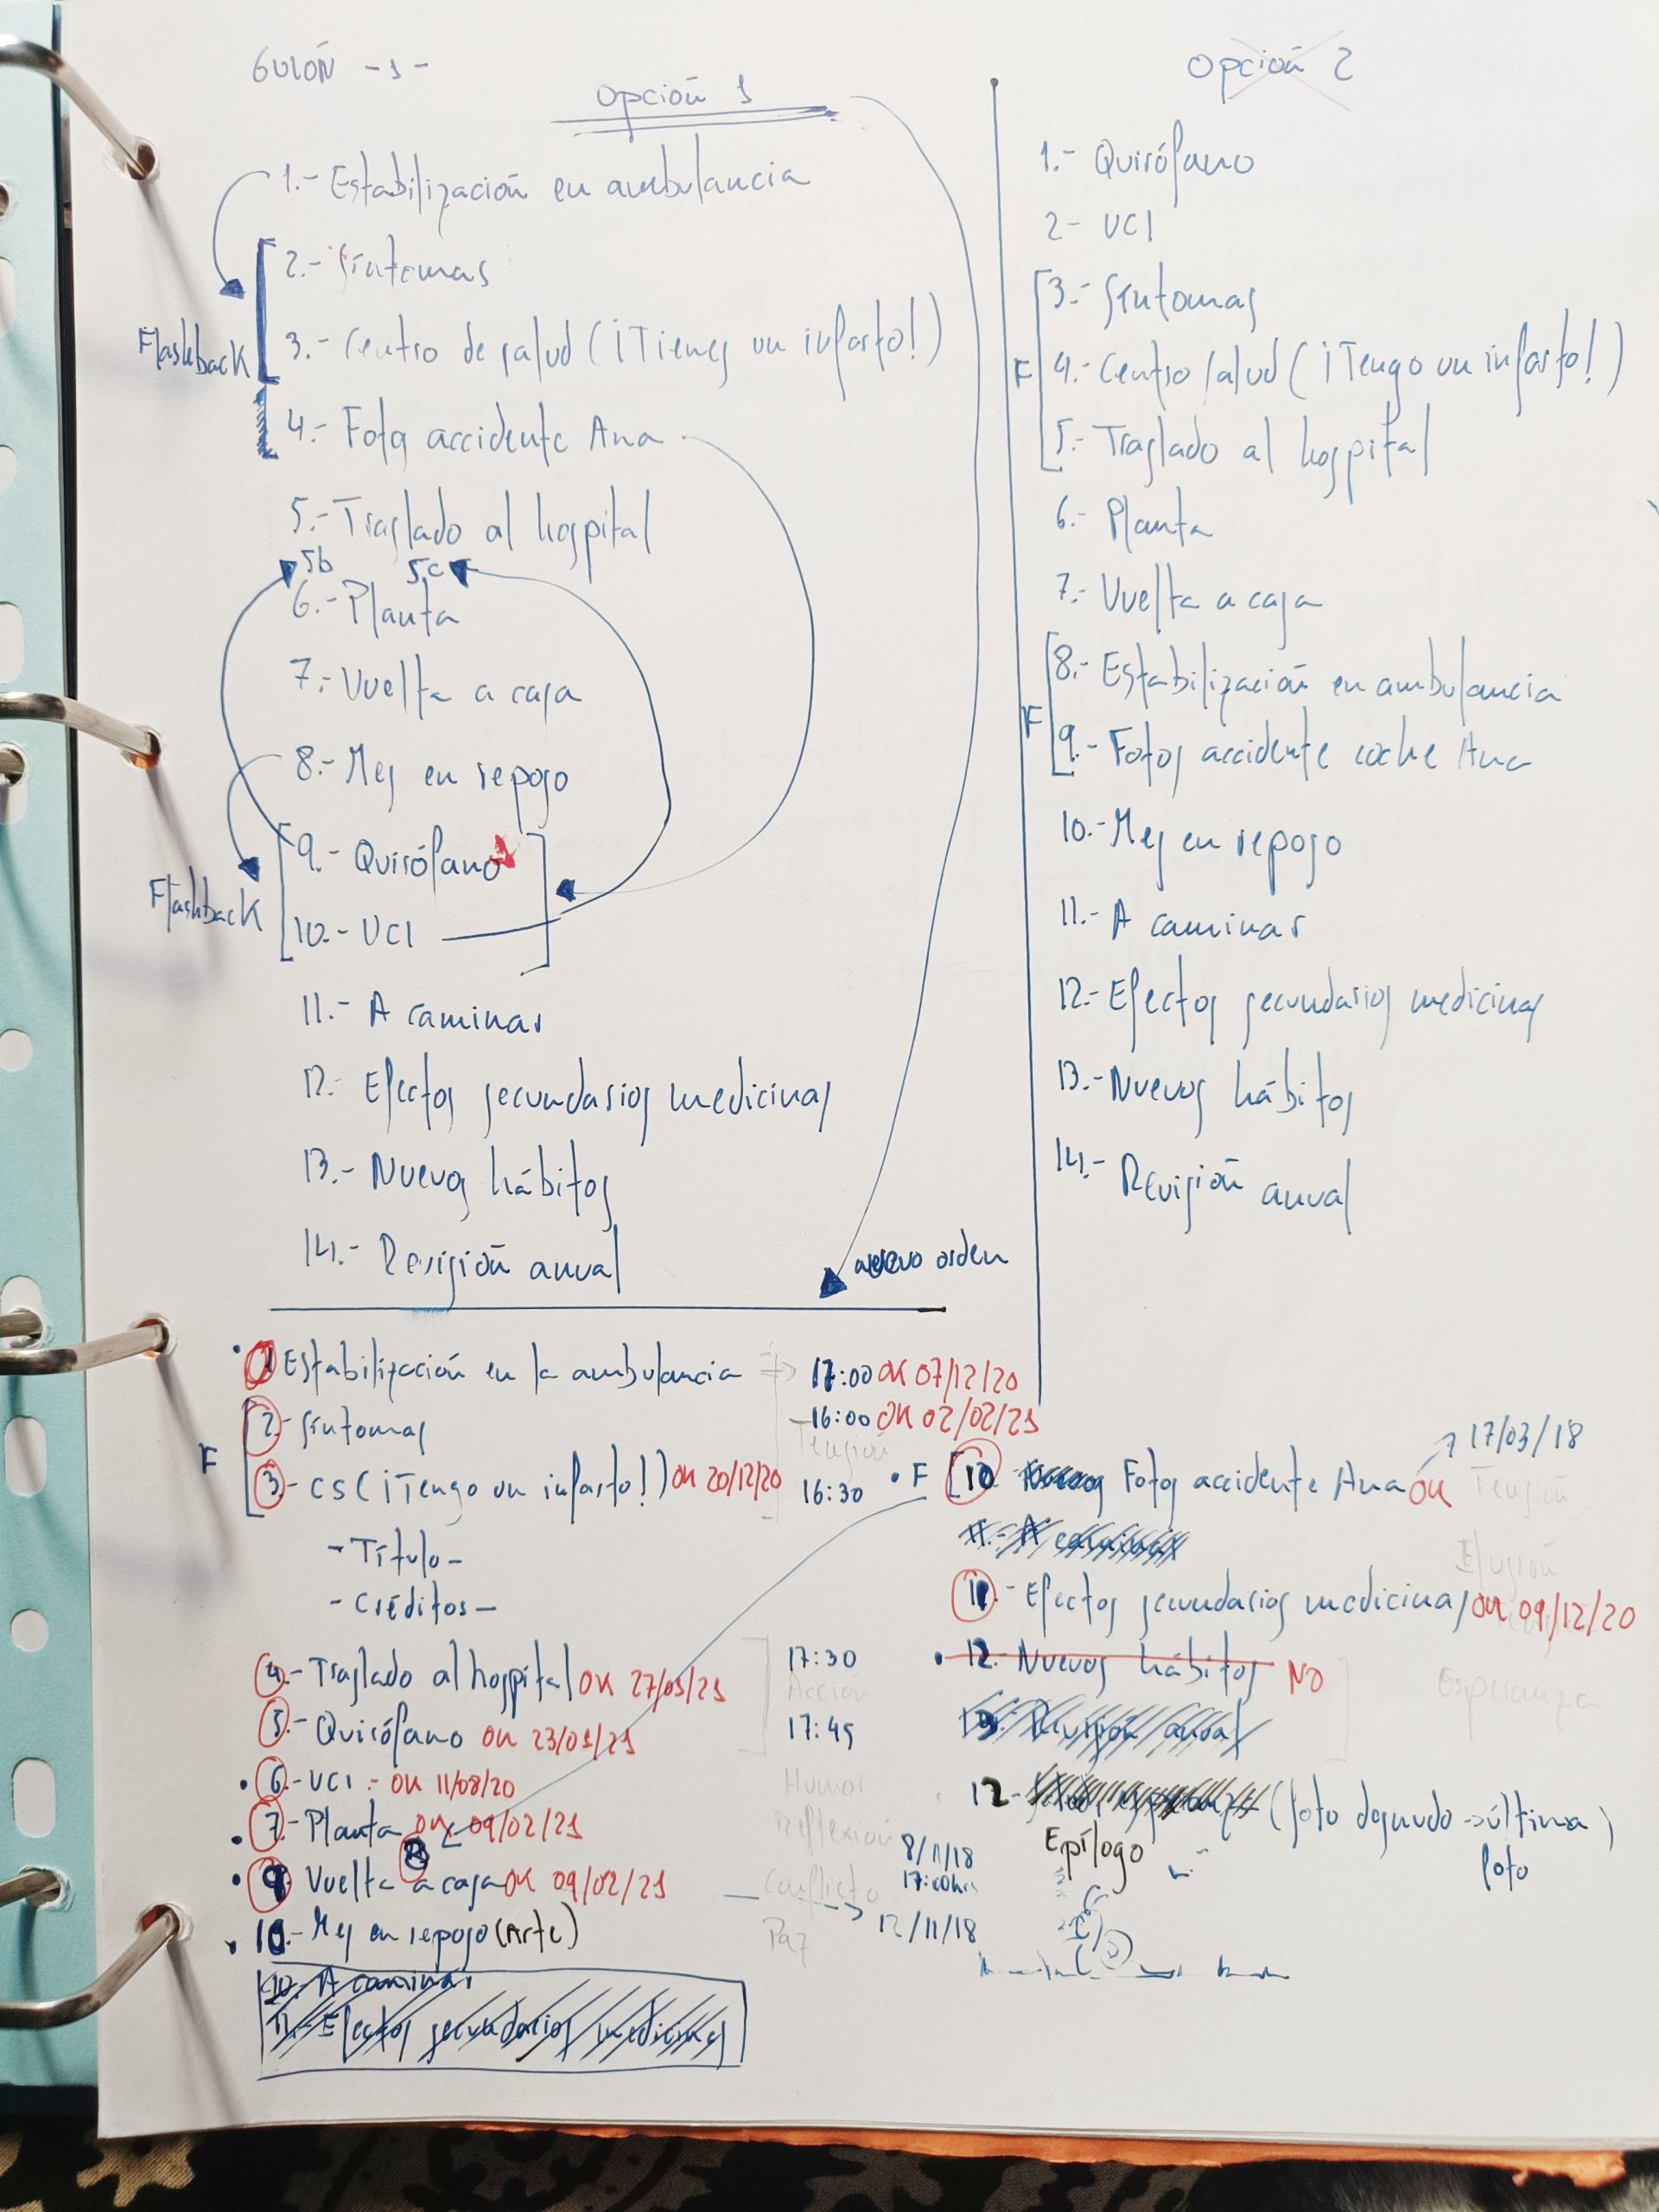 GUIÓN -1-
Opción 1
1.- Estabilización en ambulancia
Flashback
2.- Síntomas
3.- Centro de salud (¡Tienes un infarto!)
4.- Fotos accidente Ana
5.- Traslado al hospital
5b 5c
6.- Planta
7.- Vuelta a casa
8.- Mes en reposo
Flashback
9.- Quirófano
10.- UCI
11.- A caminar
12.- Efectos secundarios medicinas
13.- Nuevos hábitos
14.- Revisión anual
Opción 2
1.- Quirófano
2- UCI
F
3.- Síntomas
4.- Centro salud (¡Tengo un infarto!)
5.- Traslado al hospital
6.- Planta
7.- Vuelta a casa
F
8.- Estabilización en ambulancia
9.- Fotos accidente coche Ana
10.- Mes en reposo
11.- A caminar
12.- Efectos secundarios medicinas
13.- Nuevos hábitos
14.- Revisión anual
nuevo orden
1 Estabilización en la ambulancia => 17:00 OK 07/12/20
F
2- Síntomas - 16:00 OK 02/02/21
Tensión
3- CS (¡Tengo un infarto!) OK 20/12/20 16:30
- Título -
- Créditos -
4.- Traslado al hospital OK 27/01/21 17:30
Acción
5.- Quirófano OK 23/01/21 17:45
6.- UCI - OK 11/08/20 Humor
7.- Planta OK 09/02/21 Reflexión
8
9 Vuelta a casa OK 09/02/21 Conflicto
8/11/18
17:00hrs
-> 12/11/18
10.- Mes en reposo (Arte) Paz
10.- A caminar
11.- Efectos secundarios medicinas
17/03/18
F 10 Fotos accidente Ana OK Tensión
11.- A caminar
11.- Efectos secundarios medicinas OK 09/12/20
12.- Nuevos hábitos NO
Esperanza
13.- Revisión anual
12- (foto desnudo -> última foto)
Epílogo